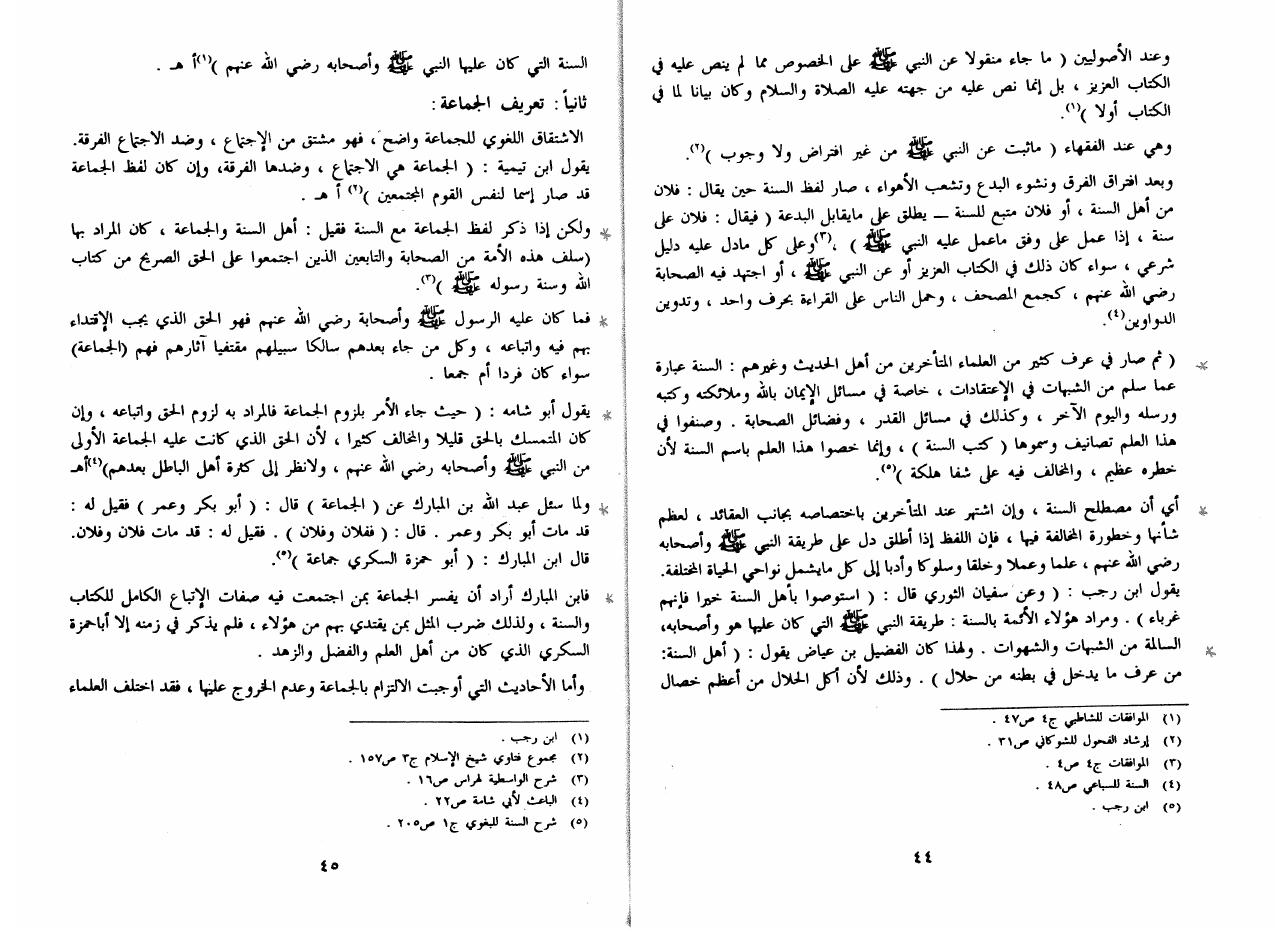 وعند الأصوليين ( ما جاء منقولا عن النبي ﷺ على الخصوص مما لم ينص عليه في
الكتاب العزيز ، بل إنما نص عليه من جهته عليه الصلاة والسلام وكان بيانا لما في
الكتاب أولا )(١).
وهي عند الفقهاء ( ماثبت عن النبي ﷺ من غير افتراض ولا وجوب )(٢).
وبعد افتراق الفرق ونشوء البدع وتشعب الأهواء ، صار لفظ السنة حين يقال : فلان
من أهل السنة ، أو فلان متبع للسنة ــ يطلق على مايقابل البدعة ( فيقال : فلان على
سنة ، إذا عمل على وفق ماعمل عليه النبي ﷺ ) ،(٣)وعلى كل مادل عليه دليل
شرعي ، سواء كان ذلك في الكتاب العزيز أو عن النبي ﷺ ، أو اجتهد فيه الصحابة
رضي الله عنهم ، كجمع المصحف ، وحمل الناس على القراءة بحرف واحد ، وتدوين
الدواوين(٤).
* ( ثم صار في عرف كثير من العلماء المتأخرين من أهل الحديث وغيرهم : السنة عبارة
عما سلم من الشبهات في الإعتقادات ، خاصة في مسائل الإيمان بالله وملائكته وكتبه
ورسله واليوم الآخر ، وكذلك في مسائل القدر ، وفضائل الصحابة . وصنفوا في
هذا العلم تصانيف وسموها ( كتب السنة ) ، وإنما خصوا هذا العلم باسم السنة لأن
خطره عظيم ، والمخالف فيه على شفا هلكة )(٥).
* أي أن مصطلح السنة ، وإن اشتهر عند المتأخرين باختصاصه بجانب العقائد ، لعظم
شأنها وخطورة المخالفة فيها ، فإن اللفظ إذا أطلق دل على طريقة النبي ﷺ وأصحابه
رضي الله عنهم ، علما وعملا وخلقا وسلوكا وأدبا إلى كل مايشمل نواحي الحياة المختلفة.
يقول ابن رجب : ( وعن سفيان الثوري قال : ( استوصوا بأهل السنة خيرا فإنهم
غرباء ) . ومراد هؤلاء الأئمة بالسنة : طريقة النبي ﷺ التي كان عليها هو وأصحابه،
* السالمة من الشبهات والشهوات . ولهذا كان الفضيل بن عياض يقول : ( أهل السنة:
من عرف ما يدخل في بطنه من حلال ) . وذلك لأن أكل الحلال من أعظم خصال
(١) الموافقات للشاطبي ج٤ ص٤٧ .
(٢) إرشاد الفحول للشوكاني ص٣١ .
(٣) الموافقات ج٤ ص٤ .
(٤) السنة للسباعي ص٤٨ .
(٥) ابن رجب .
٤٤
السنة التي كان عليها النبي ﷺ وأصحابه رضي الله عنهم )(١)أ هـ .
ثانياً : تعريف الجماعة :
الاشتقاق اللغوي للجماعة واضح ، فهو مشتق من الإجتماع ، وضد الاجتماع الفرقة.
يقول ابن تيمية : ( الجماعة هي الاجتماع ، وضدها الفرقة، وإن كان لفظ الجماعة
قد صار إسما لنفس القوم المجتمعين )(٢) أ هـ .
* ولكن إذا ذكر لفظ الجماعة مع السنة فقيل : أهل السنة والجماعة ، كان المراد بها
(سلف هذه الأمة من الصحابة والتابعين الذين اجتمعوا على الحق الصريح من كتاب
الله وسنة رسوله ﷺ )(٣).
* فما كان عليه الرسول ﷺ وأصحابة رضي الله عنهم فهو الحق الذي يجب الإقتداء
بهم فيه واتباعه ، وكل من جاء بعدهم سالكا سبيلهم مقتفيا آثارهم فهم (الجماعة)
سواء كان فردا أم جمعا .
* يقول أبو شامه : ( حيث جاء الأمر بلزوم الجماعة فالمراد به لزوم الحق واتباعه ، وإن
كان المتمسك بالحق قليلا والمخالف كثيرا ، لأن الحق الذي كانت عليه الجماعة الأولى
من النبي ﷺ وأصحابه رضي الله عنهم ، ولانظر إلى كثرة أهل الباطل بعدهم)(٤)أهـ
* ولما سئل عبد الله بن المبارك عن ( الجماعة ) قال : ( أبو بكر وعمر ) فقيل له :
قد مات أبو بكر وعمر . قال : ( ففلان وفلان ) . فقيل له : قد مات فلان وفلان.
قال ابن المبارك : ( أبو حمزة السكري جماعة )(٥).
* فابن المبارك أراد أن يفسر الجماعة بمن اجتمعت فيه صفات الإتباع الكامل للكتاب
والسنة ، ولذلك ضرب المثل بمن يقتدي بهم من هؤلاء ، فلم يذكر في زمنه إلا أباحمزة
السكري الذي كان من أهل العلم والفضل والزهد .
وأما الأحاديث التي أوجبت الالتزام بالجماعة وعدم الخروج عليها ، فقد اختلف العلماء
(١) ابن رجب .
(٢) مجموع فتاوي شيخ الإسلام ج٣ ص١٥٧ .
(٣) شرح الواسطية لهراس ص١٦ .
(٤) الباعث لأبي شامة ص٢٢ .
(٥) شرح السنة للبغوي ج١ ص٢٠٥ .
٤٥